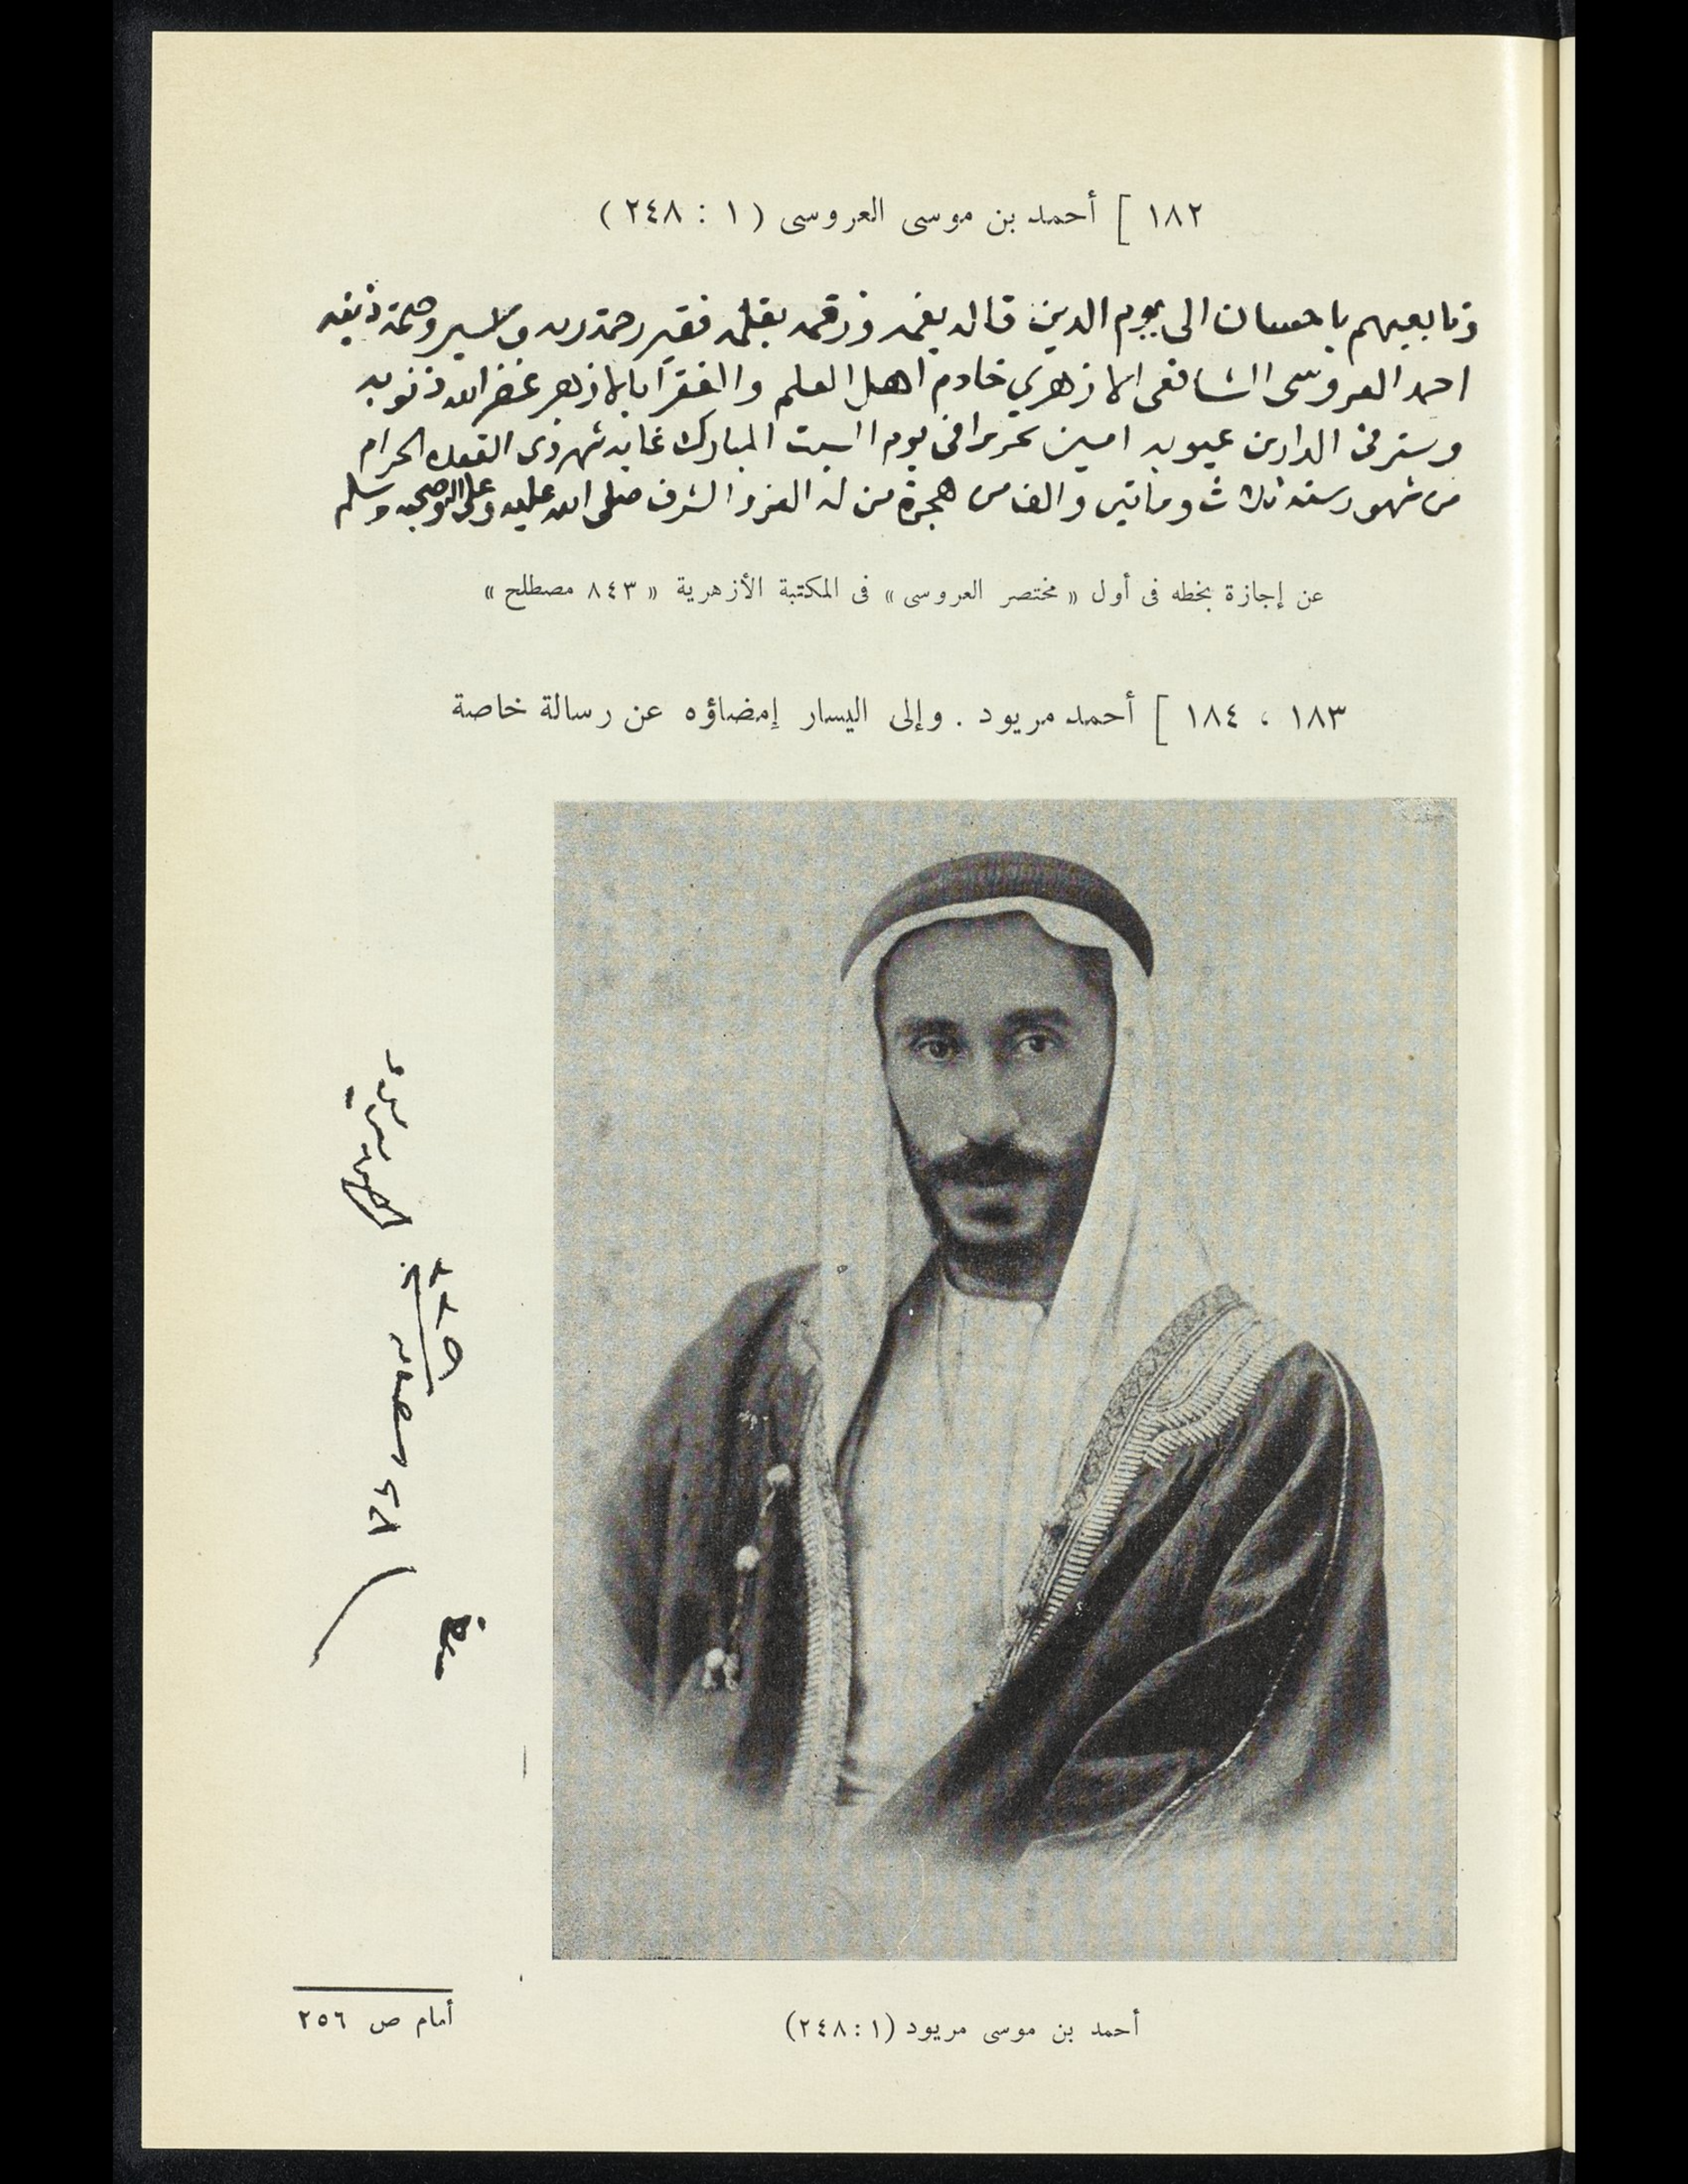 ١٨٢ ] أحمد بن موسى العروسى ( ١ : ٢٤٨ )
وتابعيهم باحسان الى يوم الدين قاله بفمه ورقمه بقلمه فقير رحمة ربه و وصمة ذنبه
احمد العروسى الشافعى الازهري خادم اهل العلم والفقرا بالازهر غفر الله ذنوبه
وستر فى الدارين عيوبه امين تحريرا فى يوم السبت المبارك غاية شهر ذى القعده الحرام
من شهور سنة ثلاث وماتين والف من هجرة من له العز والشرف صلى الله عليه وعلى اله وصحبه وسلم
عن إجازة بخطه فى أول « مختصر العروسى » فى المكتبة الأزهرية « ٨٤٣ مصطلح »
١٨٣ ، ١٨٤ ] أحمد مريود . وإلى اليسار إمضاؤه عن رسالة خاصة
أحمد بن موسى مريود (١ : ٢٤٨)
أمام ص ٢٥٦